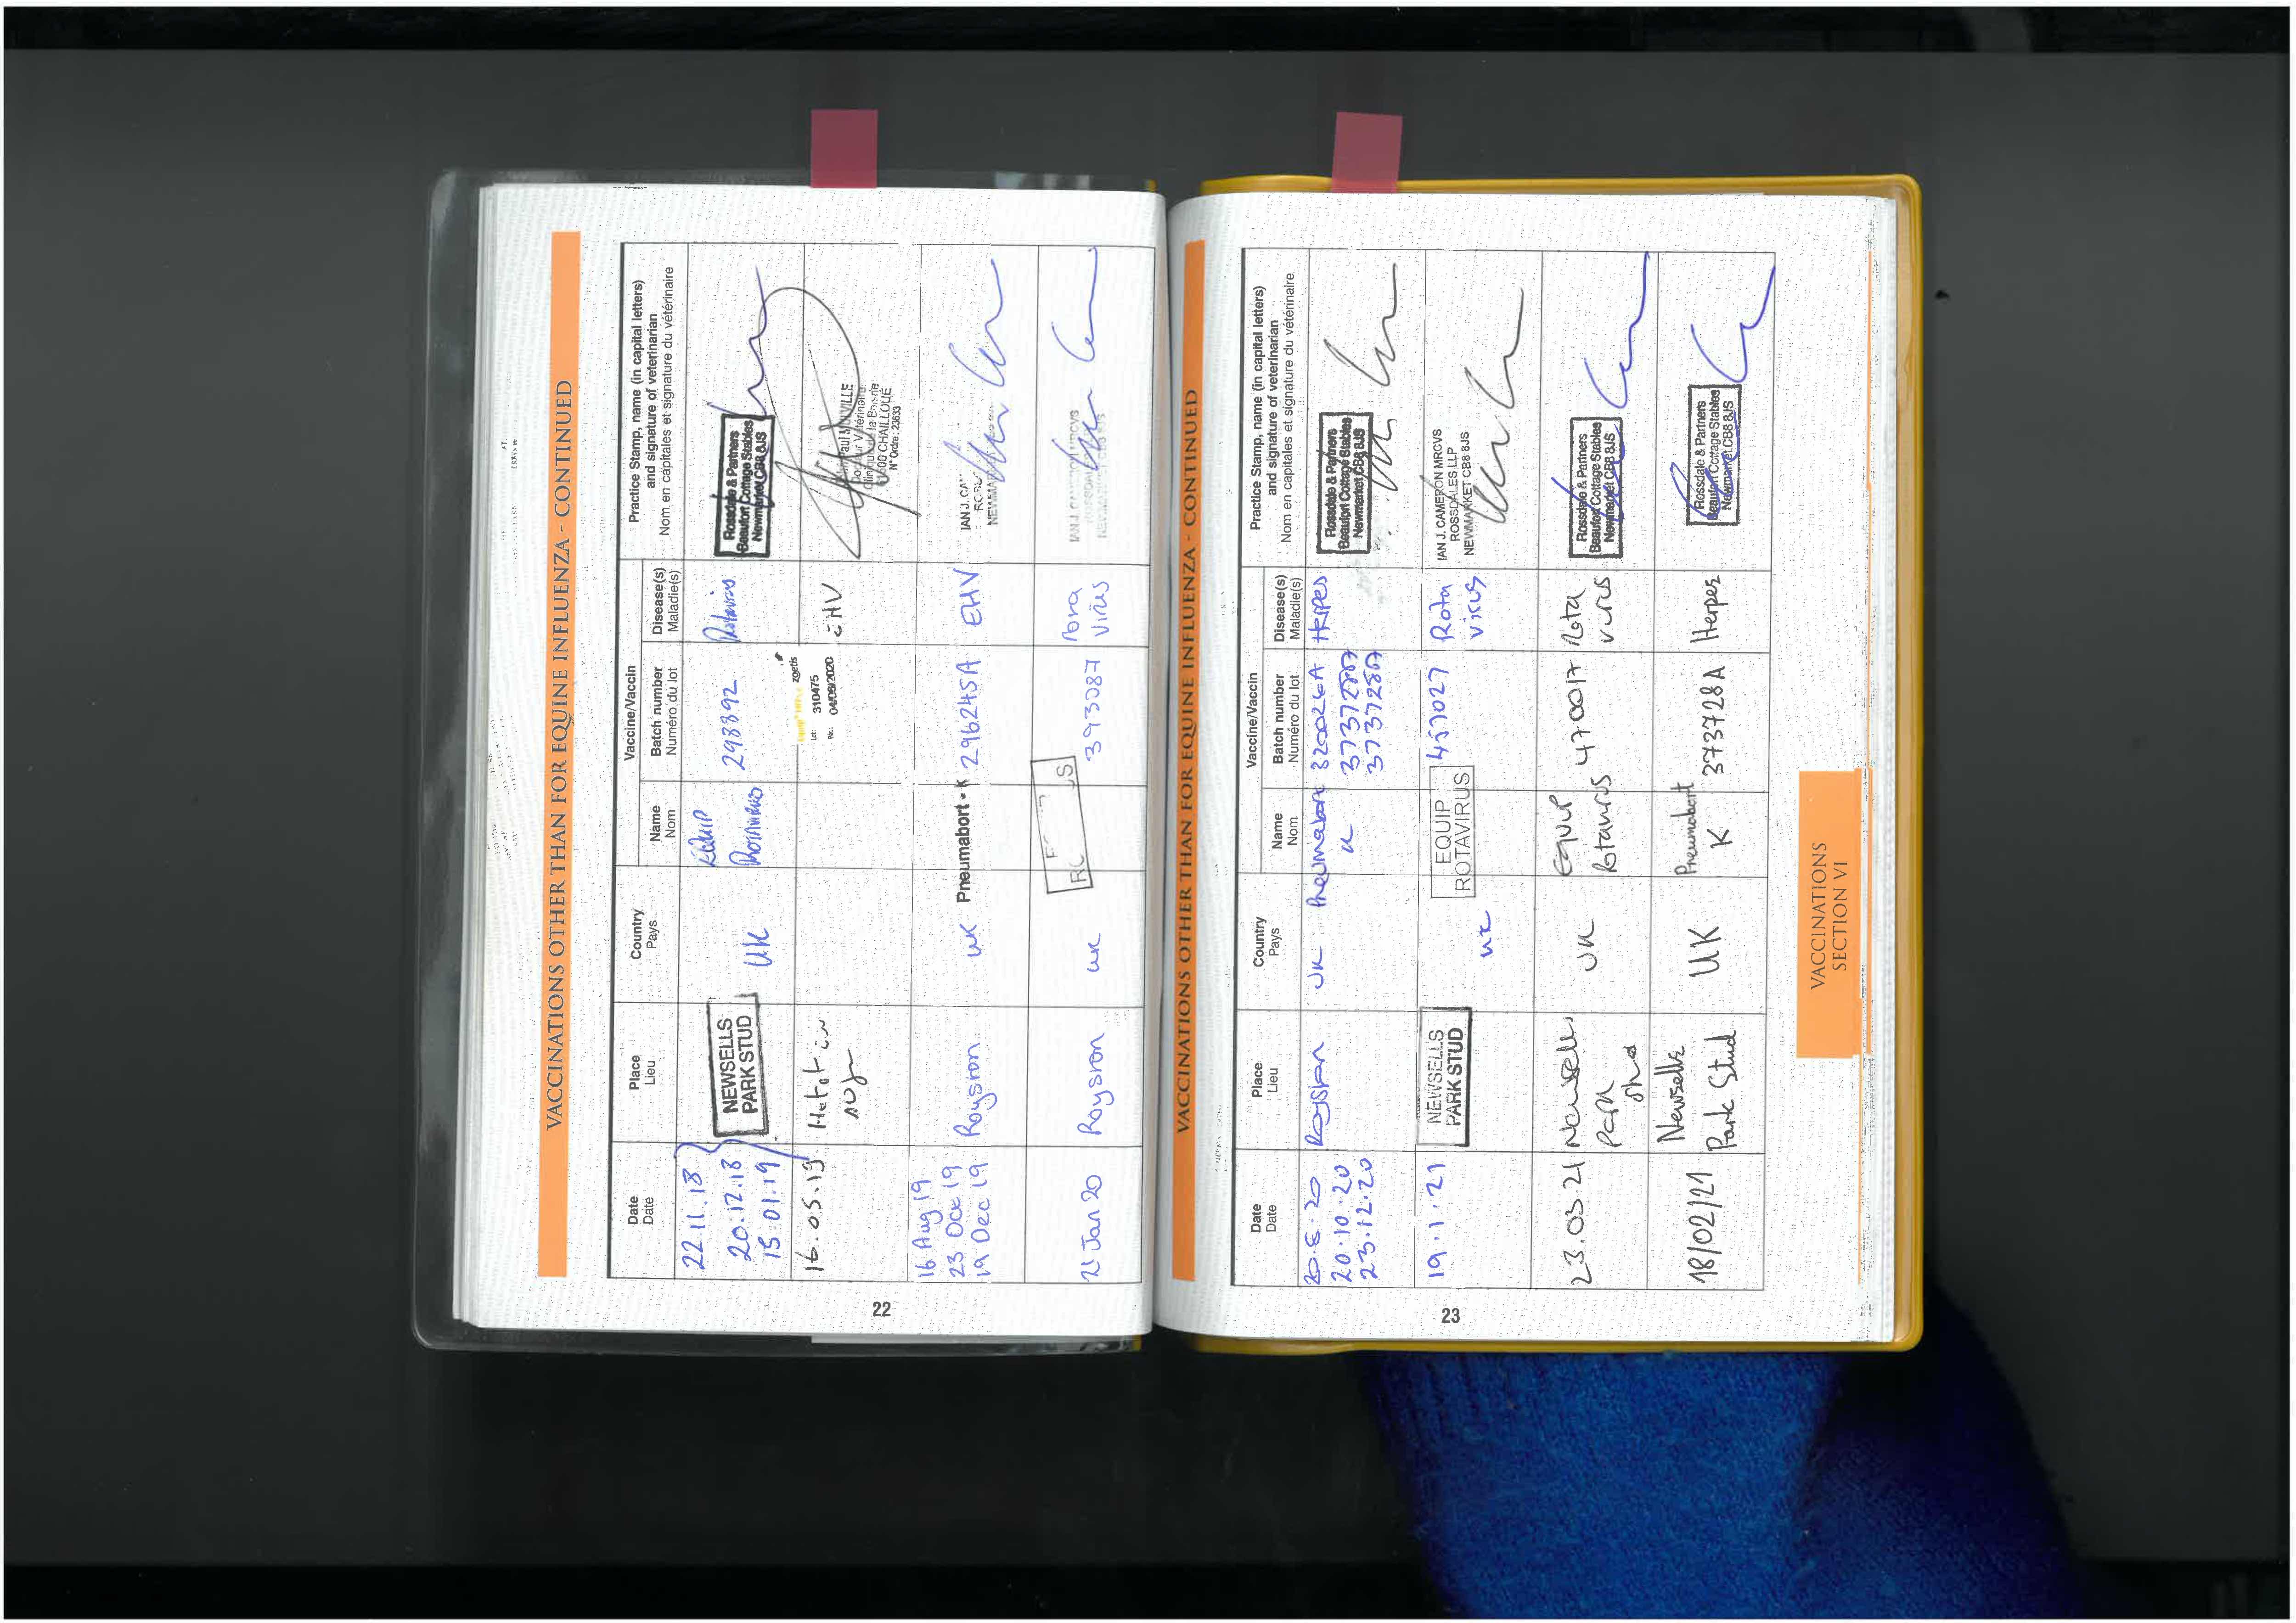 VACCINATIONS OTHER THAN FOR EQUINE INFLUENZA - CONTINUED
Date
Date
Place
Lieu
Country
Pays
Vaccine/Vaccin
Name
Nom
Batch number
Numéro du lot
Disease(s)
Maladie(s)
Practice Stamp, name (in capital letters)
and signature of veterinarian
Nom en capitales et signature du vétérinaire
22.11.18
20.12.18
15.01.19
NEWSELLS
PARK STUD
UK
EQUIP
Rotavirus
298892
Rotavirus
Rossdale & Partners
Beaufort Cottage Stables
Newmarket CB8 8JS
16.05.19
zoetis
Lot: 310475
04/09/2020
EHV
Docteur Vétérinaire
Clinique de la Boisrie
61500 CHAILLOUÉ
N° Ordre: 23633
16 Aug 19
23 Oct 19
19 Dec 19
Royston
UK
Pneumabort - K
296245A
EHV
IAN J. CA
NEWMAR
21 Jan 20
Royston
UK
393087
Rota
Virus
IAN J. CAMERON MRCVS
22
VACCINATIONS OTHER THAN FOR EQUINE INFLUENZA - CONTINUED
Date
Date
Place
Lieu
Country
Pays
Vaccine/Vaccin
Name
Nom
Batch number
Numéro du lot
Disease(s)
Maladie(s)
Practice Stamp, name (in capital letters)
and signature of veterinarian
Nom en capitales et signature du vétérinaire
20.10.20
23.12.20
Royston
UK
Pneumabort
K
320026A
373728A
373728A
Herpes
Rossdale & Partners
Beaufort Cottage Stables
Newmarket CB8 8JS
19.1.21
NEWSELLS
PARK STUD
UK
EQUIP
ROTAVIRUS
457027
Rota
virus
IAN J. CAMERON MRCVS
ROSSDALES LLP
NEWMARKET CB8 8JS
23.03.21
Newsells
Park
Stud
UK
Equip
Rotavirus
470017
Rota
virus
Rossdale & Partners
Beaufort Cottage Stables
Newmarket CB8 8JS
18/02/21
Newsells
Park Stud
UK
Pneumabort
K
373728A
Herpes
Rossdale & Partners
Beaufort Cottage Stables
Newmarket CB8 8JS
23
VACCINATIONS
SECTION VI